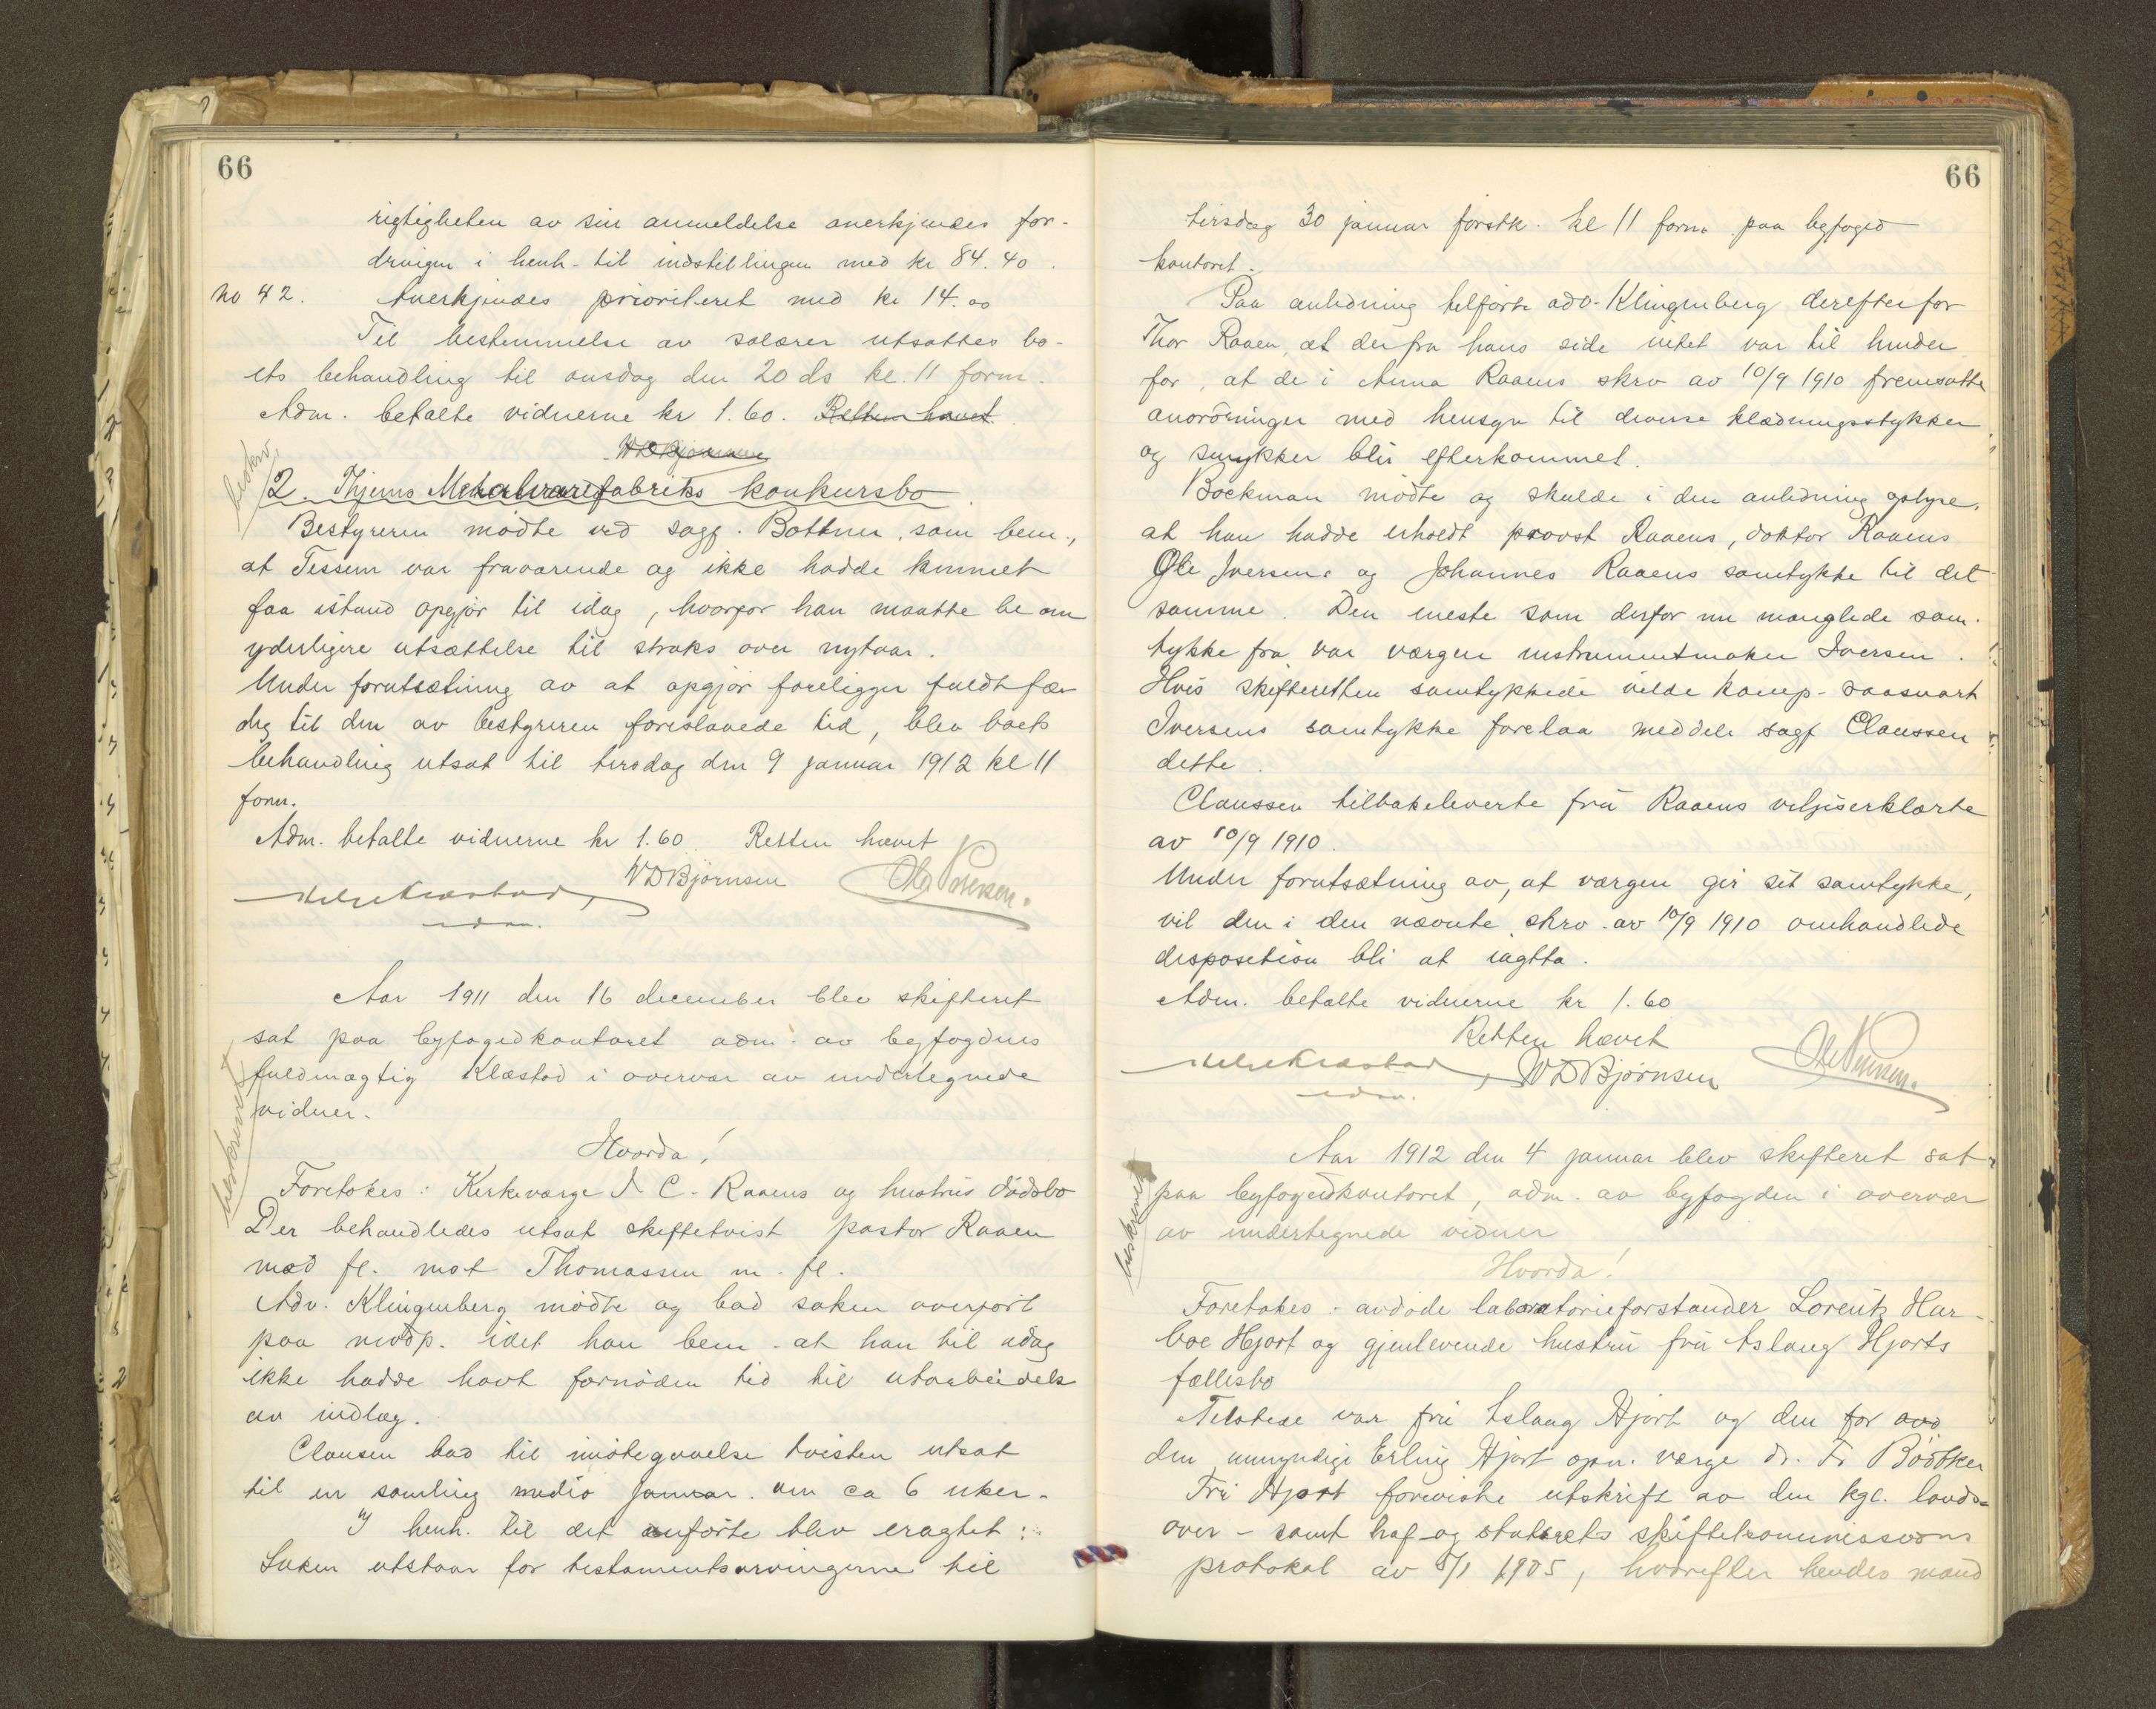 66
rigtigheten av sin anmeldelse anerkjendes for-
dringen i henh. til indstillingen med kr 84.40.
no 42. Anerkjendes prioriteret med kr 14.00
Til bestemmelse av salærer utsattes bo-
ets behandling til onsdag den 20 ds kl. 11 form.
Adm. betalte vidnerne kr 1.60. Retten hævet
WDBjørnsen
beskrev
2. Thjems Metalvarefabriks konkursbo.
Bestyreren mødte ved sagf. Bottner, som bem.,
at Tessem var fraværende og ikke hadde kunnet
faa istand opgjør til idag, hvorfor han maatte be om
yderligere utsættelse til straks over nytaar.
Under forutsætning av at opgjør foreligger fuldt fær-
dig til den av bestyreren foreslaaede tid, blev boets
behandling utsat til tirsdag den 9 januar 1912 kl 11
form.
Adm. betalte vidnerne kr 1.60 Retten hævet
WDBjørnsen
adm.
Aar 1911 den 16 december blev skifteret
sat paa byfogedkontoret adm. av byfogdens
fuldmægtig Klæstad i overvær av undertegnede
vidner.
beskrevet
Hvorda!
Foretokes: Kirkeværge I C. Raaens og hustrus dødsbo
Der behandledes utsat skiftetvist pastor Raaen
med fl. mot Thomassen m. fl.
Adv. Klingenberg mødte og bad saken overført
paa modp. idet han bem. at han til idag
ikke hadde havt fornøden tid til utarbeidelse
av indlæg.
Clausen bad til imøtegaaelse tvisten utsat
til en samling medio januar. om ca 6 uker.
I henh. til det anførte blev eragtet:
Saken utstaar for testamentsarvingerne til
66
tirsdag 30 januar førstk. kl 11 form. paa byfoged
kontoret.
Paa anledning tilførte adv. Klingenberg derefter for
Thor Raaen, at der fra hans side intet var til hinder
for, at de i Anna Raaens skrv av 10/9 1910 fremsatte
anordninger med hensyn til diverse klædningsstykker
og smykker blir efterkommet.
Bockman mødte og skulde i den anledning oplyse,
at han hadde erholdt provst Raaens, doktor Raaens
Ole Iversens og Johannes Raaens samtykke til det
samme. Den eneste som derfor nu manglede sam-
tykke fra var værgen instrumentmaker Iversen.
Hvis skifteretten samtykkede vilde komp. saasnart
Iversens samtykke forelaa meddele sagf Claussen
dette.
Claussen tilbakeleverte fru Raaens viljeserklærte
av 10/9 1910.
Under forutsætning av, at værgen gir sit samtykke,
vil den i den nævnte skrv. av 10/9 1910 omhandlede
disposition bli at iagtta.
Adm. betalte vidnerne kr 1.60
Retten hævet
WDBjørnsen
adm.
Aar 1912 den 4 januar blev skifteret sat
paa byfogedkontoret, adm. av byfogden i overvær
av undertegnede vidner
beskrevet
Hvorda!
Foretokes: avdøde laboratorieforstander Lorentz Har-
boe Hjort og gjenlevende hustru fru Aslaug Hjorts
fællesbo
Tilstede var fru Aslaug Hjort og den for
den umyndige Erling Hjort opn. værge dr. Fr Bødtker
Fru Hjort foreviste utskrift av den kgl. lands-
over- samt hof og statsrets skiftekommissions
protokol av 5/1 1905, hvorefter hendes mand